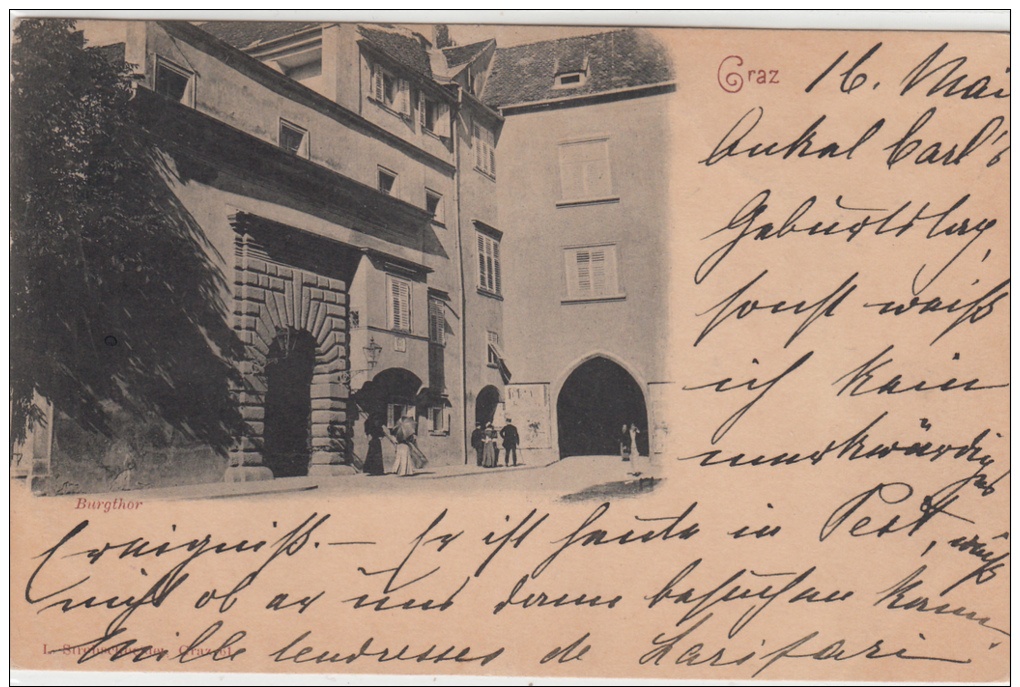 Graz 16. Mai
Onkel Carl's
Geburtstag,
sonst weiß
ich kein
merkwürdiges
Burgthor
Ereigniß. — Er ist heute in Pest, weiß
nicht ob er uns dann besuchen kann.
Mille tendresses de Larifari
Graz